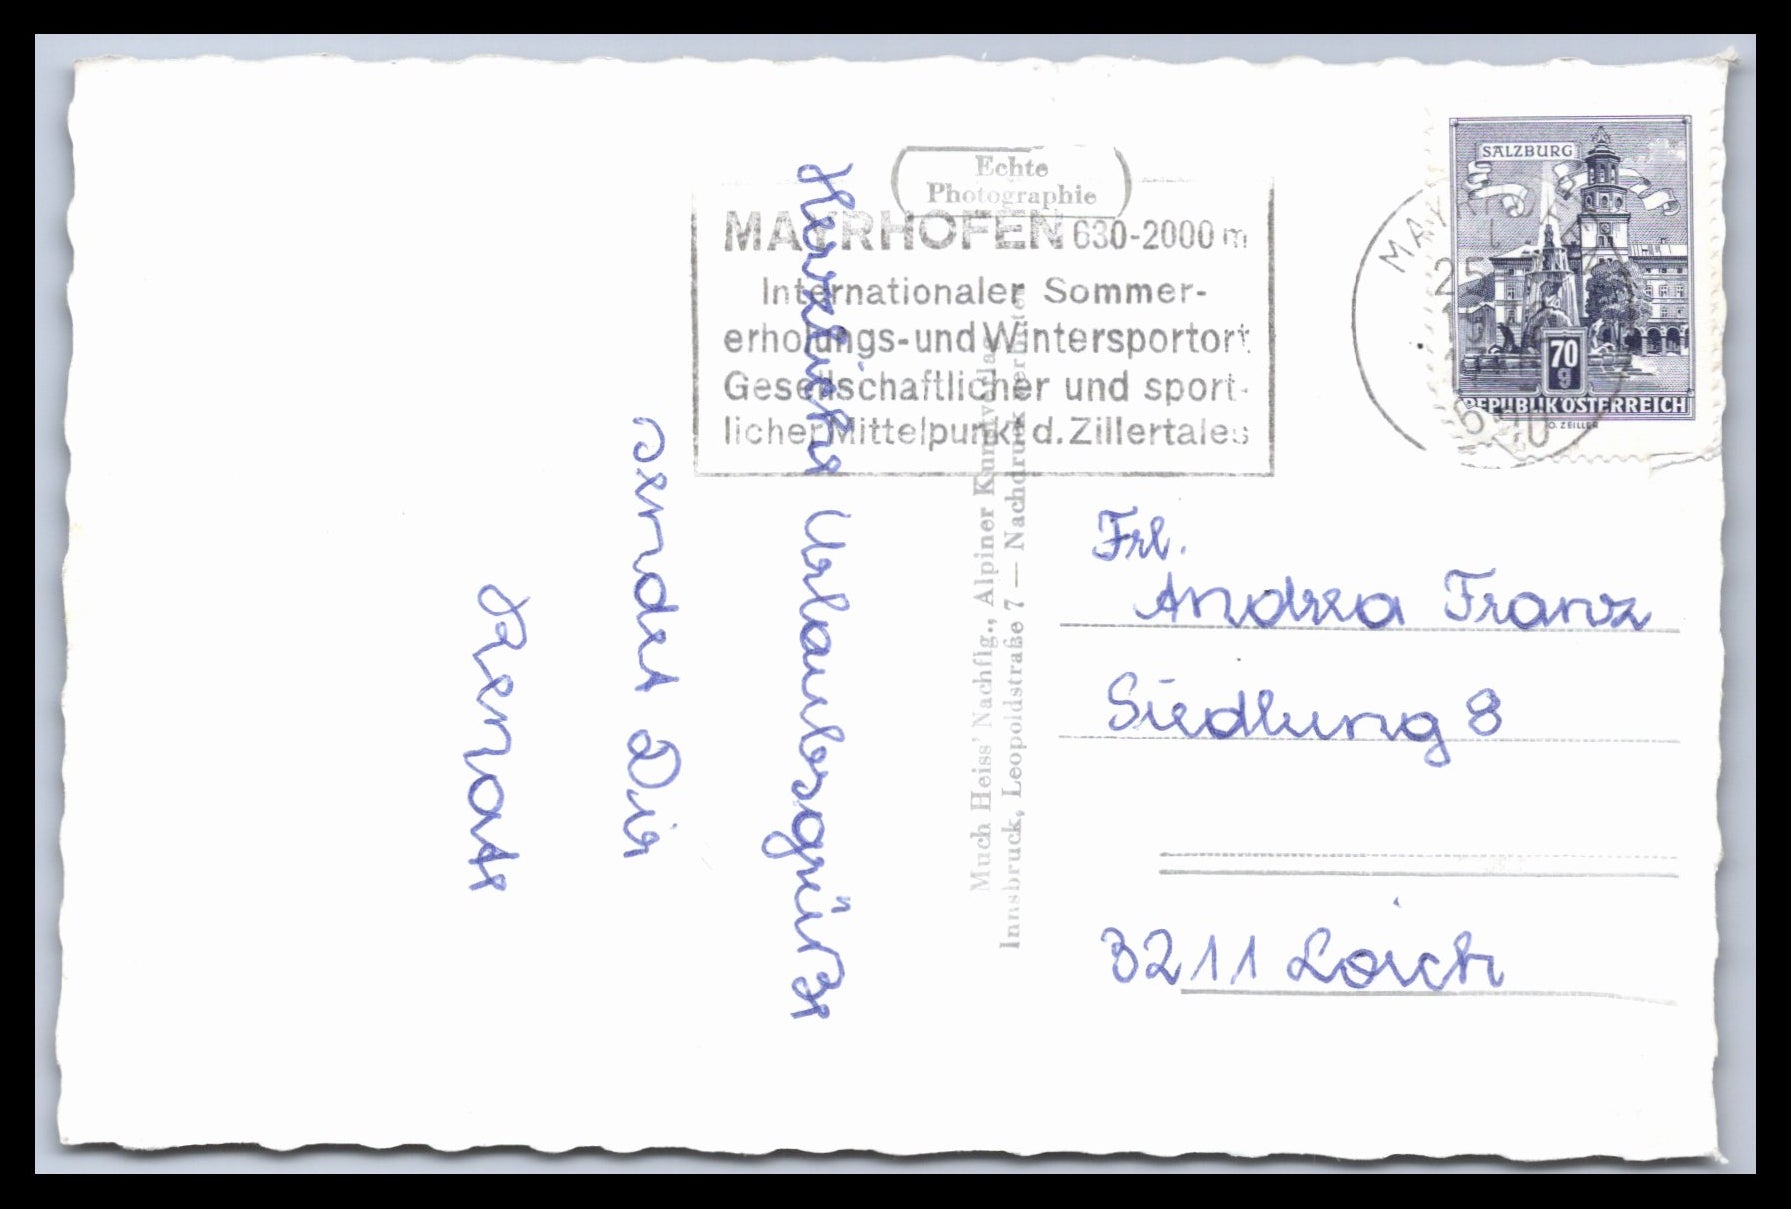 Echte
Photographie
MAYRHOFEN 630-2000 m
Internationaler Sommer-
erholungs-und Wintersportort
Gesellschaftlicher und sport-
licher Mittelpunkt d. Zillertales
SALZBURG
70
g
REPUBLIK ÖSTERREICH
O. ZEILLER
MAY
25
Herzliche Urlaubsgrüße
sendet Dir
Renate
Much Heiss' Nachflg., Alpiner Kunstverlag
Innsbruck, Leopoldstraße 7 — Nachdruck verboten
Frl.
Andrea Franz
Siedlung 8
3211 Loich